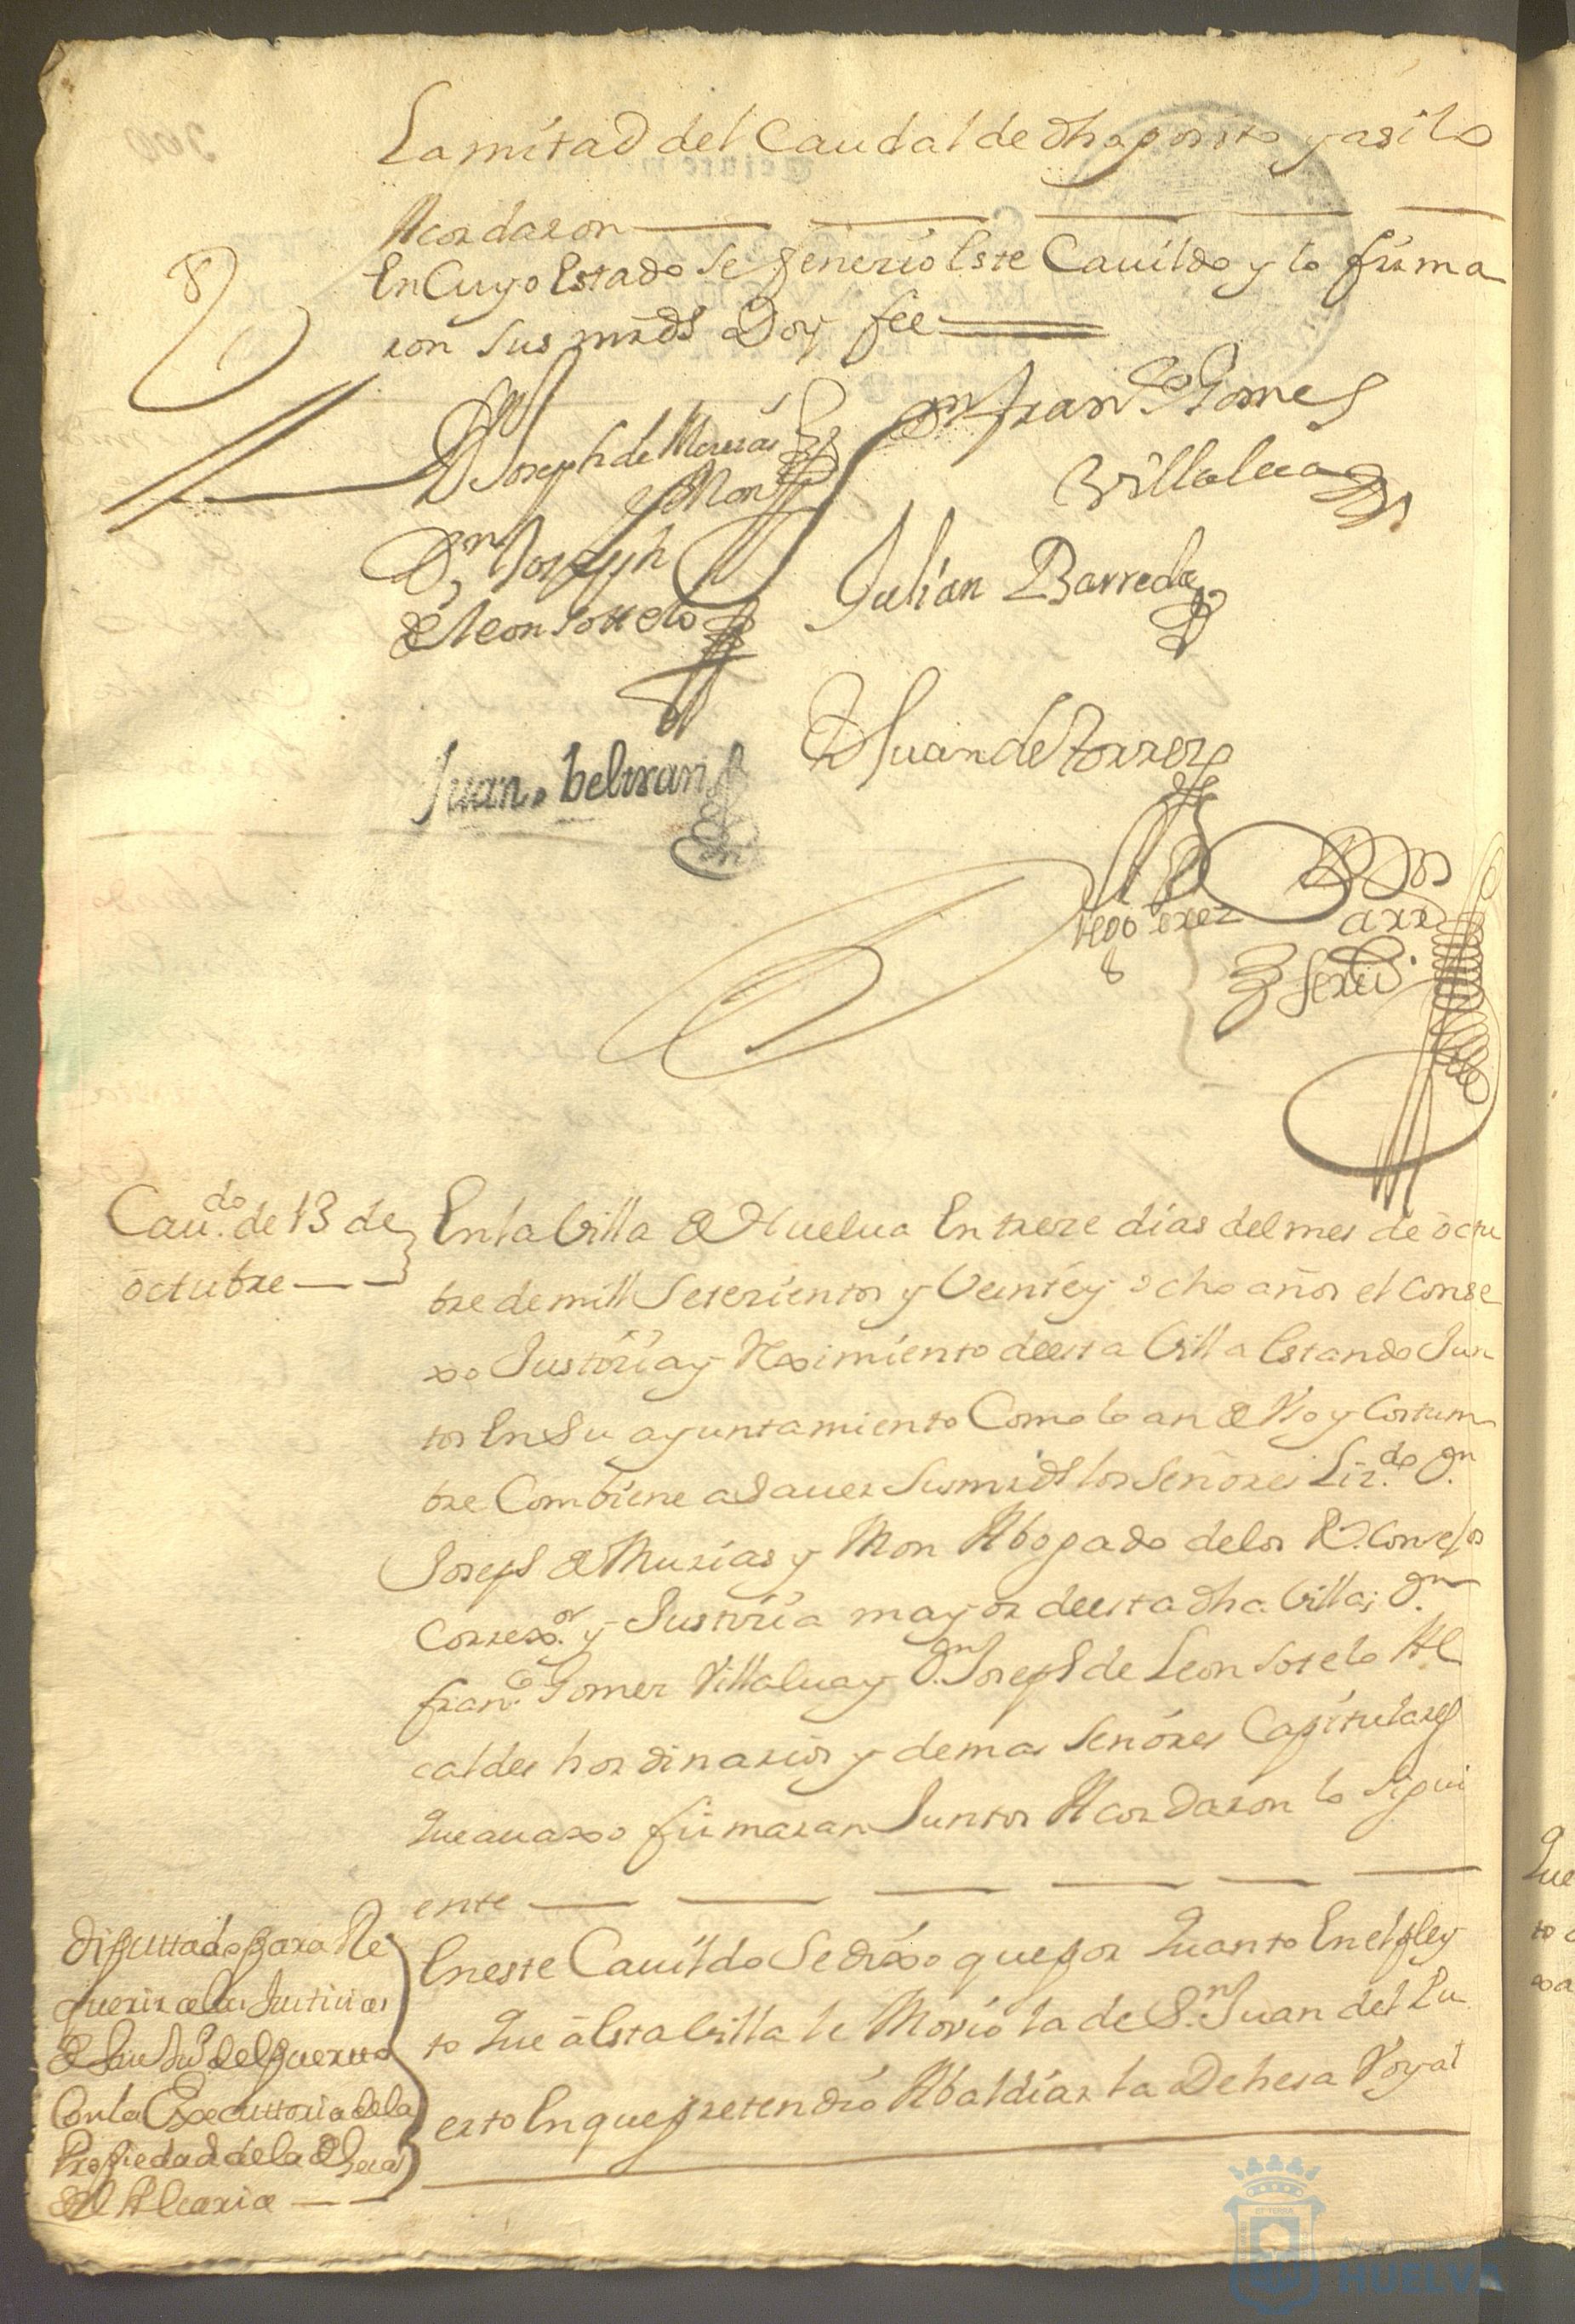 La mitad del Caudal de dho posito y asi lo
Acordaron
En Cuyo Estado se feneció Este Cauildo y lo firma
ron Sus mrds Doy fee
Dn Joseph de Murias
y Mon
Dn Franco Gomes
Villalua
Dn Joseph
de leon Sotelo
Julian Barreda
Juan beltran
D Juan de Torres
Diego Perez
Escriu.
Caudo. de 13 de
octubre
En la Villa de Huelua En treze dias del mes de octu
bre de mill Setezientos y Veinte y ocho años el Conse
xo Justizia y Reximiento de esta Villa Estando Jun
tos En Su ayuntamiento Como lo an de Vso y Costum
bre Combiene a Sauer Sus mrds los Señores Lizdo. Dn.
Joseph de Murias y Mon Abogado de los Rs. Consejos
Correxor. y Justizia mayor de esta dha Villa; Dn.
Franco. Gomez Villalua y Dn. Joseph de Leon Sotelo Al
caldes hordinarios y demas Señores Capitulares
Que auaxo firmaran Juntos Acordaron lo Sigui
ente
Diputado para Re
querir a las Justicias
de San Jun. del puerto
Con la Executoria de la
Propiedad de la dehesa
del Alcaria
En este Cauildo Se dixo que por Quanto En el pley
to Que a Esta Villa le Movio la de Sn. Juan del Pu
erto En que pretendio Abaldiar la Dehesa Royal
Que
to
xa
HUELVA